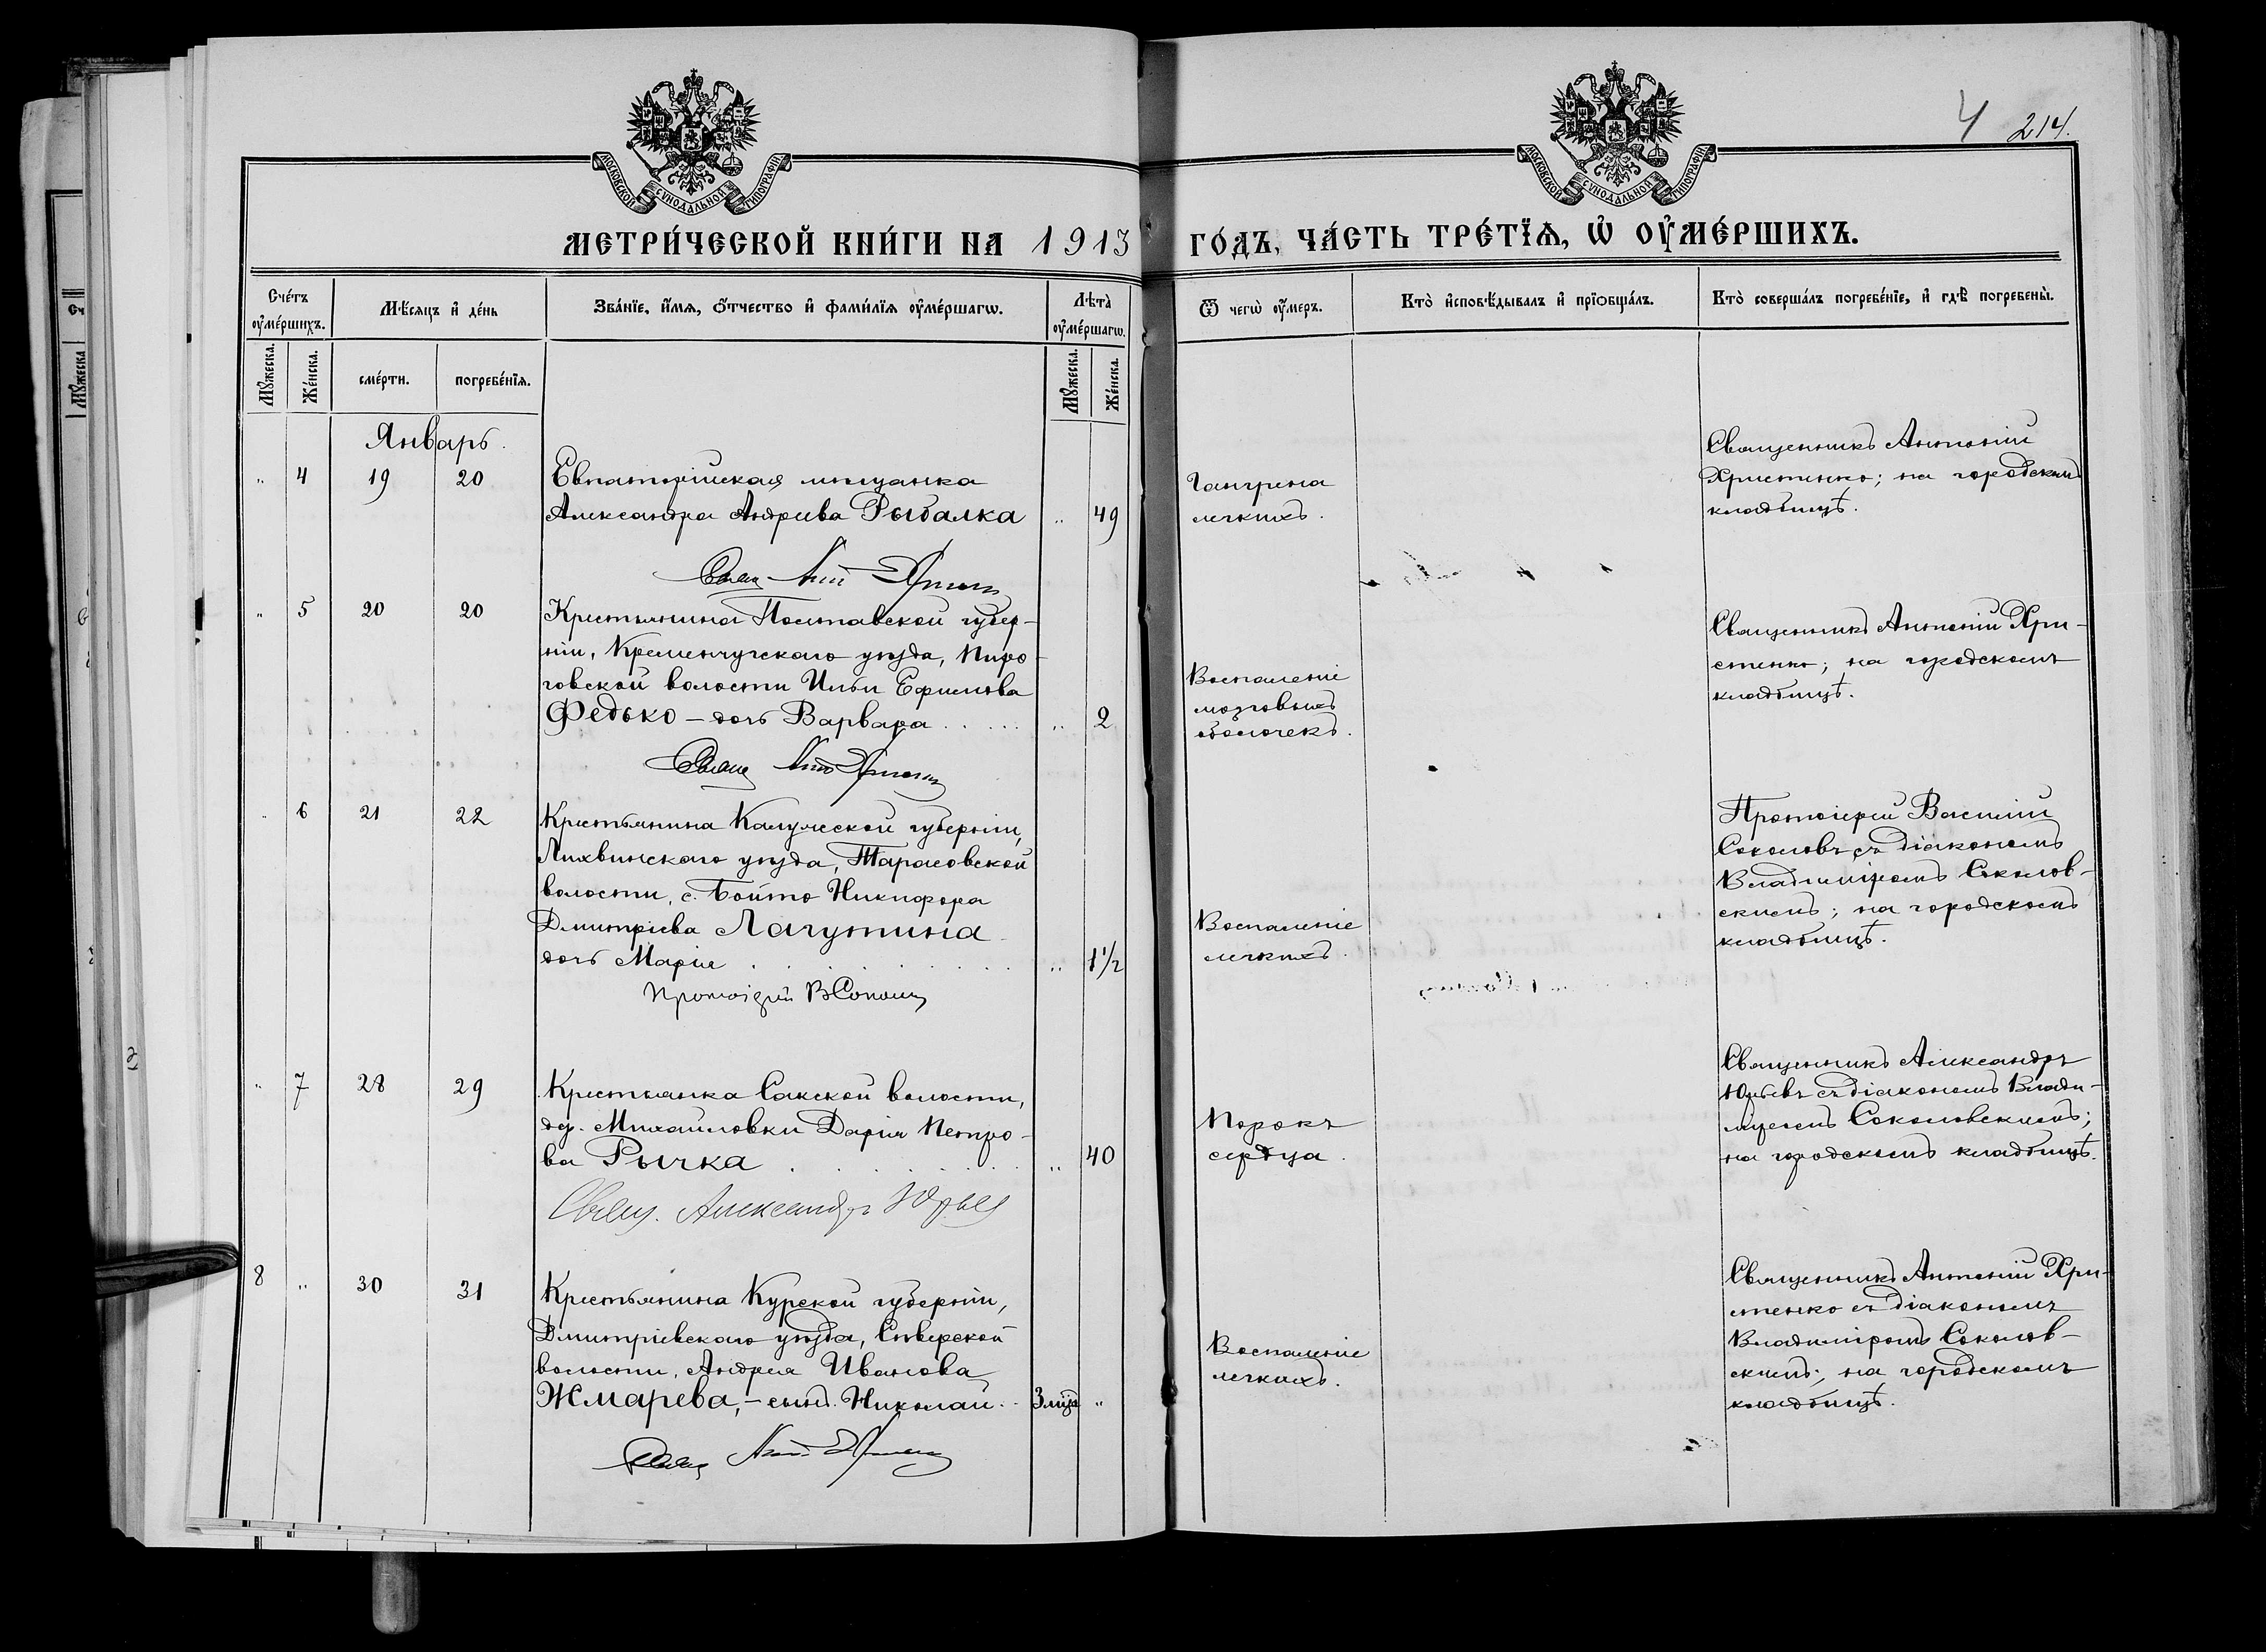 4 214.
МОСКОВСКОЙ СѴНОДАЛЬНОЙ ТИПОГРАФІИ
МОСКОВСКОЙ СѴНОДАЛЬНОЙ ТИПОГРАФІИ
МЕТРИ́ЧЕСКОЙ КНИ́ГИ НА 1913 ГО́ДЪ, ЧА́СТЬ ТРЕ́ТЇѦ, Ѡ҆ ОУ҆МЕ́РШИХЪ.
Сче́тъ оу҆ме́ршихъ.
Мѣ́сяцъ и҆ де́нь
Зва́нїе, и҆́мѧ, ѻ҆́тчество и҆ фами́лїѧ оу҆ме́ршагѡ.
Лѣта̀ оу҆ме́ршагѡ.
Ѿ чегѡ̀ оу҆́меръ.
Кто̀ и҆сповѣ́дывалъ и҆ прїѡбща́лъ.
Кто̀ соверша́лъ погребе́нїе, и҆ гдѣ̀ погребены̀.
Мꙋ́жеска.
Же́нска.
сме́рти.
погребе́нїѧ.
Мꙋ́жеска.
Же́нска.
Январь.
" 4 19 20
Евпаторійская мѣщанка
Александра Андреева Рыбалка " 49
Гангрена
легкихъ.
Священникъ Антоній
Христенко; на городскомъ
кладбищѣ.
" 5 20 20
Крестьянина Полтавской губер-
ніи, Кременчугскаго уѣзда, Пиро-
говской волости Ильи Ефимова
Федько – дочь Варвара " 2
Воспаленіе
мозговыхъ
оболочекъ.
Священникъ Антоній Хри-
стенко; на городскомъ
кладбищѣ.
" 6 21 22
Крестьянина Калужской губерніи,
Лихвинскаго уѣзда, Тарасовской
волости, с. Бойто Никифора
Дмитріева Лагутина
дочь Марія " 1½
Протоіерей В Соколовъ
Воспаленіе
легкихъ.
Протоіерей Василій
Соколовъ съ діакономъ
Владиміромъ Соколов-
скимъ; на городскомъ
кладбищѣ.
" 7 28 29
Крестьянка Сакской волости,
дер. Михайловки Дарія Петро-
ва Рычка " 40
Свящ. Александръ Юрьев
Порокъ
сердца.
Священникъ Александръ
Юрьевъ съ діакономъ Влади-
міромъ Соколовскимъ;
на городскомъ кладбищѣ.
8 " 30 31
Крестьянина Курской губерніи,
Дмитріевскаго уѣзда, Сѣверской
волости, Андрея Иванова
Жмарева, – сынъ Николай. 3 мѣс. "
Воспаленіе
легкихъ.
Священникъ Антоній Хри-
стенко съ діакономъ
Владиміромъ Соколов-
скимъ; на городскомъ
кладбищѣ.